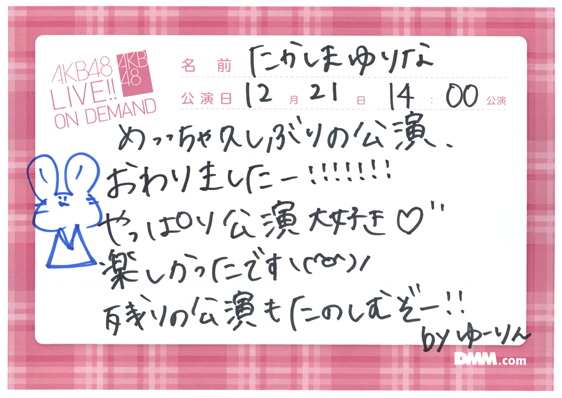 AKB48
LIVE!!
ON DEMAND
AKB
48
名前 たかしまゆりな
公演日 12月21日 14:00公演
めっちゃ久しぶりの公演、
おわりましたー!!!!!!!
やっぱり公演大好き♡"
楽しかったです\(^o^)/
残りの公演もたのしむぞー!!
by ゆーりん
DMM.com